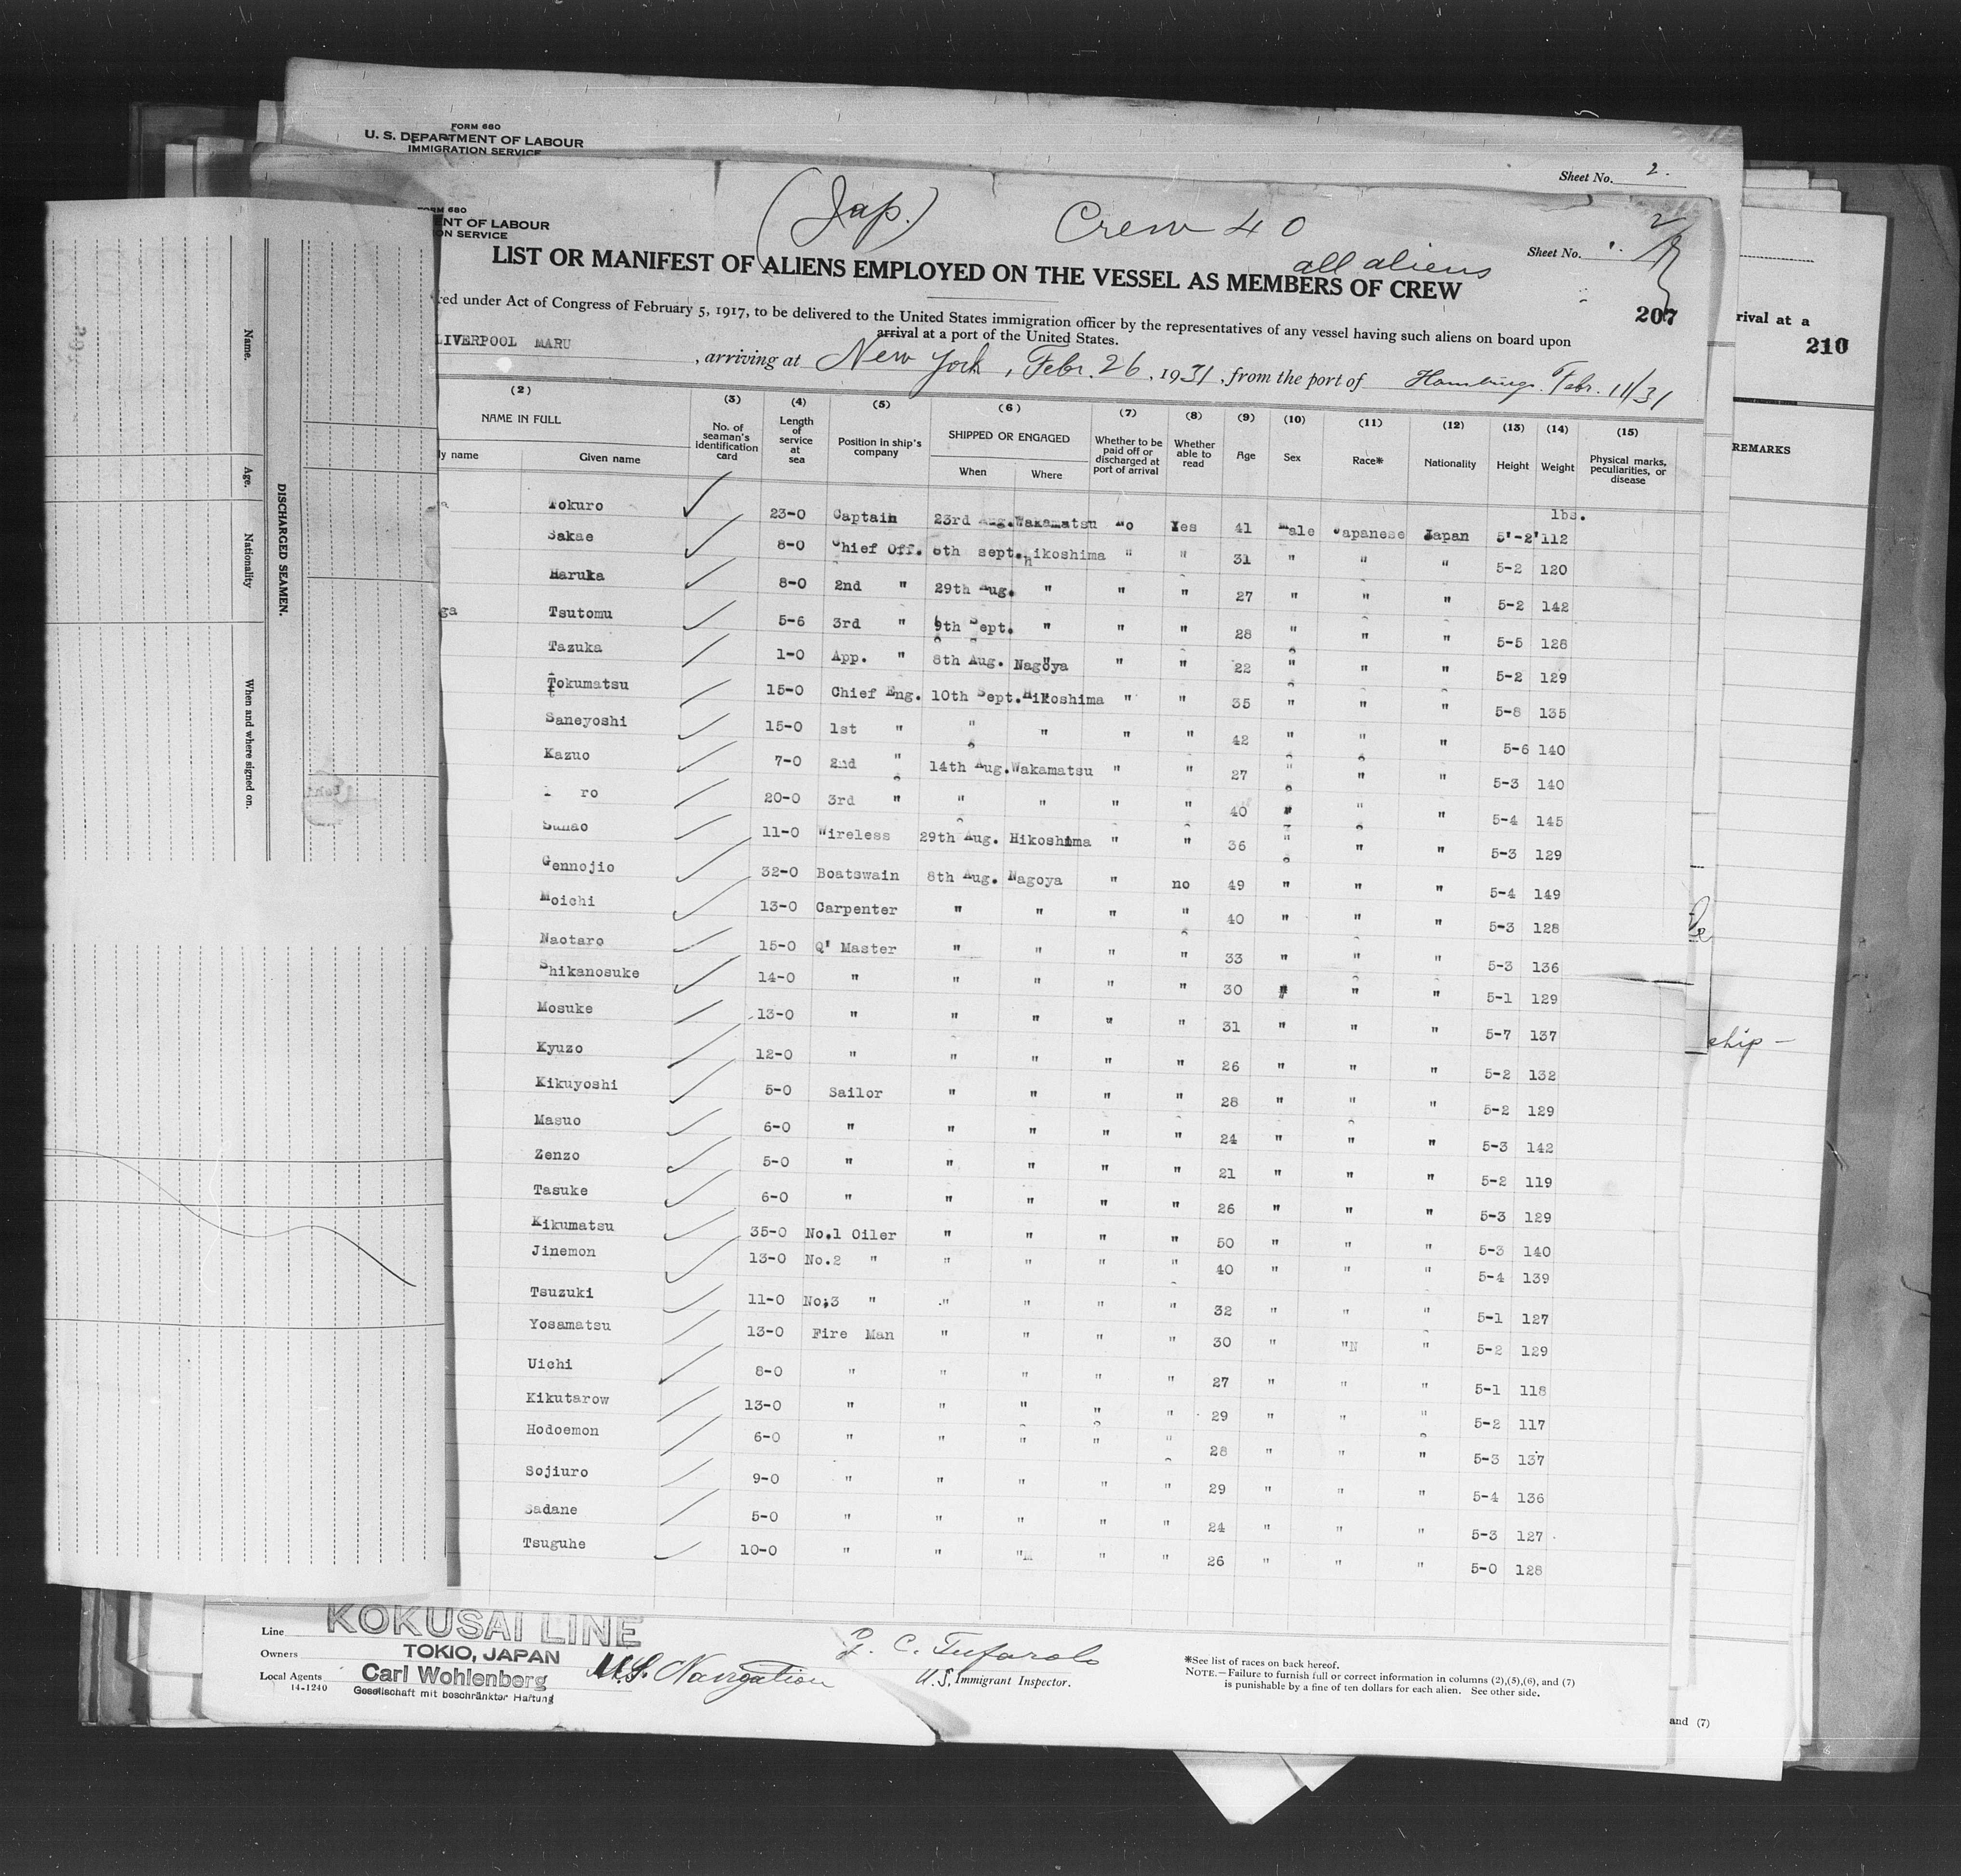 FORM 680
U. S. DEPARTMENT OF LABOUR
IMMIGRATION SERVICE
Sheet No. 2.
FORM 680
ENT OF LABOUR
ON SERVICE
(Jap.) Crew 40
all aliens
Sheet No.
LIST OR MANIFEST OF ALIENS EMPLOYED ON THE VESSEL AS MEMBERS OF CREW
207
red under Act of Congress of February 5, 1917, to be delivered to the United States immigration officer by the representatives of any vessel having such aliens on board upon
arrival at a port of the United States.
LIVERPOOL MARU, arriving at New York, Febr. 26, 1931, from the port of Hamburg. Febr. 11/31
(2) (3) (4) (5) (6) (7) (8) (9) (10) (11) (12) (13) (14) (15)
NAME IN FULL
y name Given name
No. of seaman's identification card
Length of service at sea
Position in ship's company
SHIPPED OR ENGAGED
When Where
Whether to be paid off or discharged at port of arrival
Whether able to read
Age
Sex
Race*
Nationality
Height
Weight
Physical marks, peculiarities, or disease
lbs.
Tokuro 23-0 Captain 23rd Aug. Wakamatsu No Yes 41 Male Japanese Japan 5'-2' 112
Sakae 8-0 Chief Off. 6th sept. hikoshima " " 31 " " " 5-2 120
Haruka 8-0 2nd " 29th Aug. " " " 27 " " " 5-2 142
ga Tsutomu 5-6 3rd " 9th Sept. " " " 28 " " " 5-5 128
Tazuka 1-0 App. " 8th Aug. Nagoya " " 22 " " " 5-2 129
Tokumatsu 15-0 Chief Eng. 10th Sept. Hikoshima " " 35 " " " 5-8 135
Saneyoshi 15-0 1st " " " " " 42 " " " 5-6 140
Kazuo 7-0 2nd " 14th Aug. Wakamatsu " " 27 " " " 5-3 140
ro 20-0 3rd " " " " " 40 " " " 5-4 145
Sunao 11-0 Wireless 29th Aug. Hikoshima " " 36 " " " 5-3 129
Gennojio 32-0 Boatswain 8th Aug. Nagoya " no 49 " " " 5-4 149
Moichi 13-0 Carpenter " " " " 40 " " " 5-3 128
Naotaro 15-0 Q' Master " " " " 33 " " " 5-3 136
Shikanosuke 14-0 " " " " " 30 " " " 5-1 129
Mosuke 13-0 " " " " " 31 " " " 5-7 137
Kyuzo 12-0 " " " " " 26 " " " 5-2 132
Kikuyoshi 5-0 Sailor " " " " 28 " " " 5-2 129
Masuo 6-0 " " " " " 24 " " " 5-3 142
Zenzo 5-0 " " " " " 21 " " " 5-2 119
Tasuke 6-0 " " " " " 26 " " " 5-3 129
Kikumatsu 35-0 No.1 Oiler " " " " 50 " " " 5-3 140
Jinemon 13-0 No.2 " " " " " 40 " " " 5-4 139
Tsuzuki 11-0 No;3 " " " " " 32 " " " 5-1 127
Yosamatsu 13-0 Fire Man " " " " 30 " "N " 5-2 129
Uichi 8-0 " " " " " 27 " " " 5-1 118
Kikutarow 13-0 " " " " " 29 " " " 5-2 117
Hodoemon 6-0 " " " " " 28 " " " 5-3 137
Sojiuro 9-0 " " " " " 29 " " " 5-4 136
Sadane 5-0 " " " " " 24 " " " 5-3 127
Tsuguhe 10-0 " " " " " 26 " " " 5-0 128
Line KOKUSAI LINE
Owners TOKIO, JAPAN
Local Agents Carl Wohlenberg
14-1240 Gesellschaft mit beschränkter Haftung
U.S. Navigation
U.S. Immigrant Inspector.
*See list of races on back hereof.
NOTE.—Failure to furnish full or correct information in columns (2),(5),(6), and (7)
is punishable by a fine of ten dollars for each alien. See other side.
and (7)
rival at a
210
REMARKS
ship -
DISCHARGED SEAMEN.
Name.
Age.
Nationality
When and where signed on.